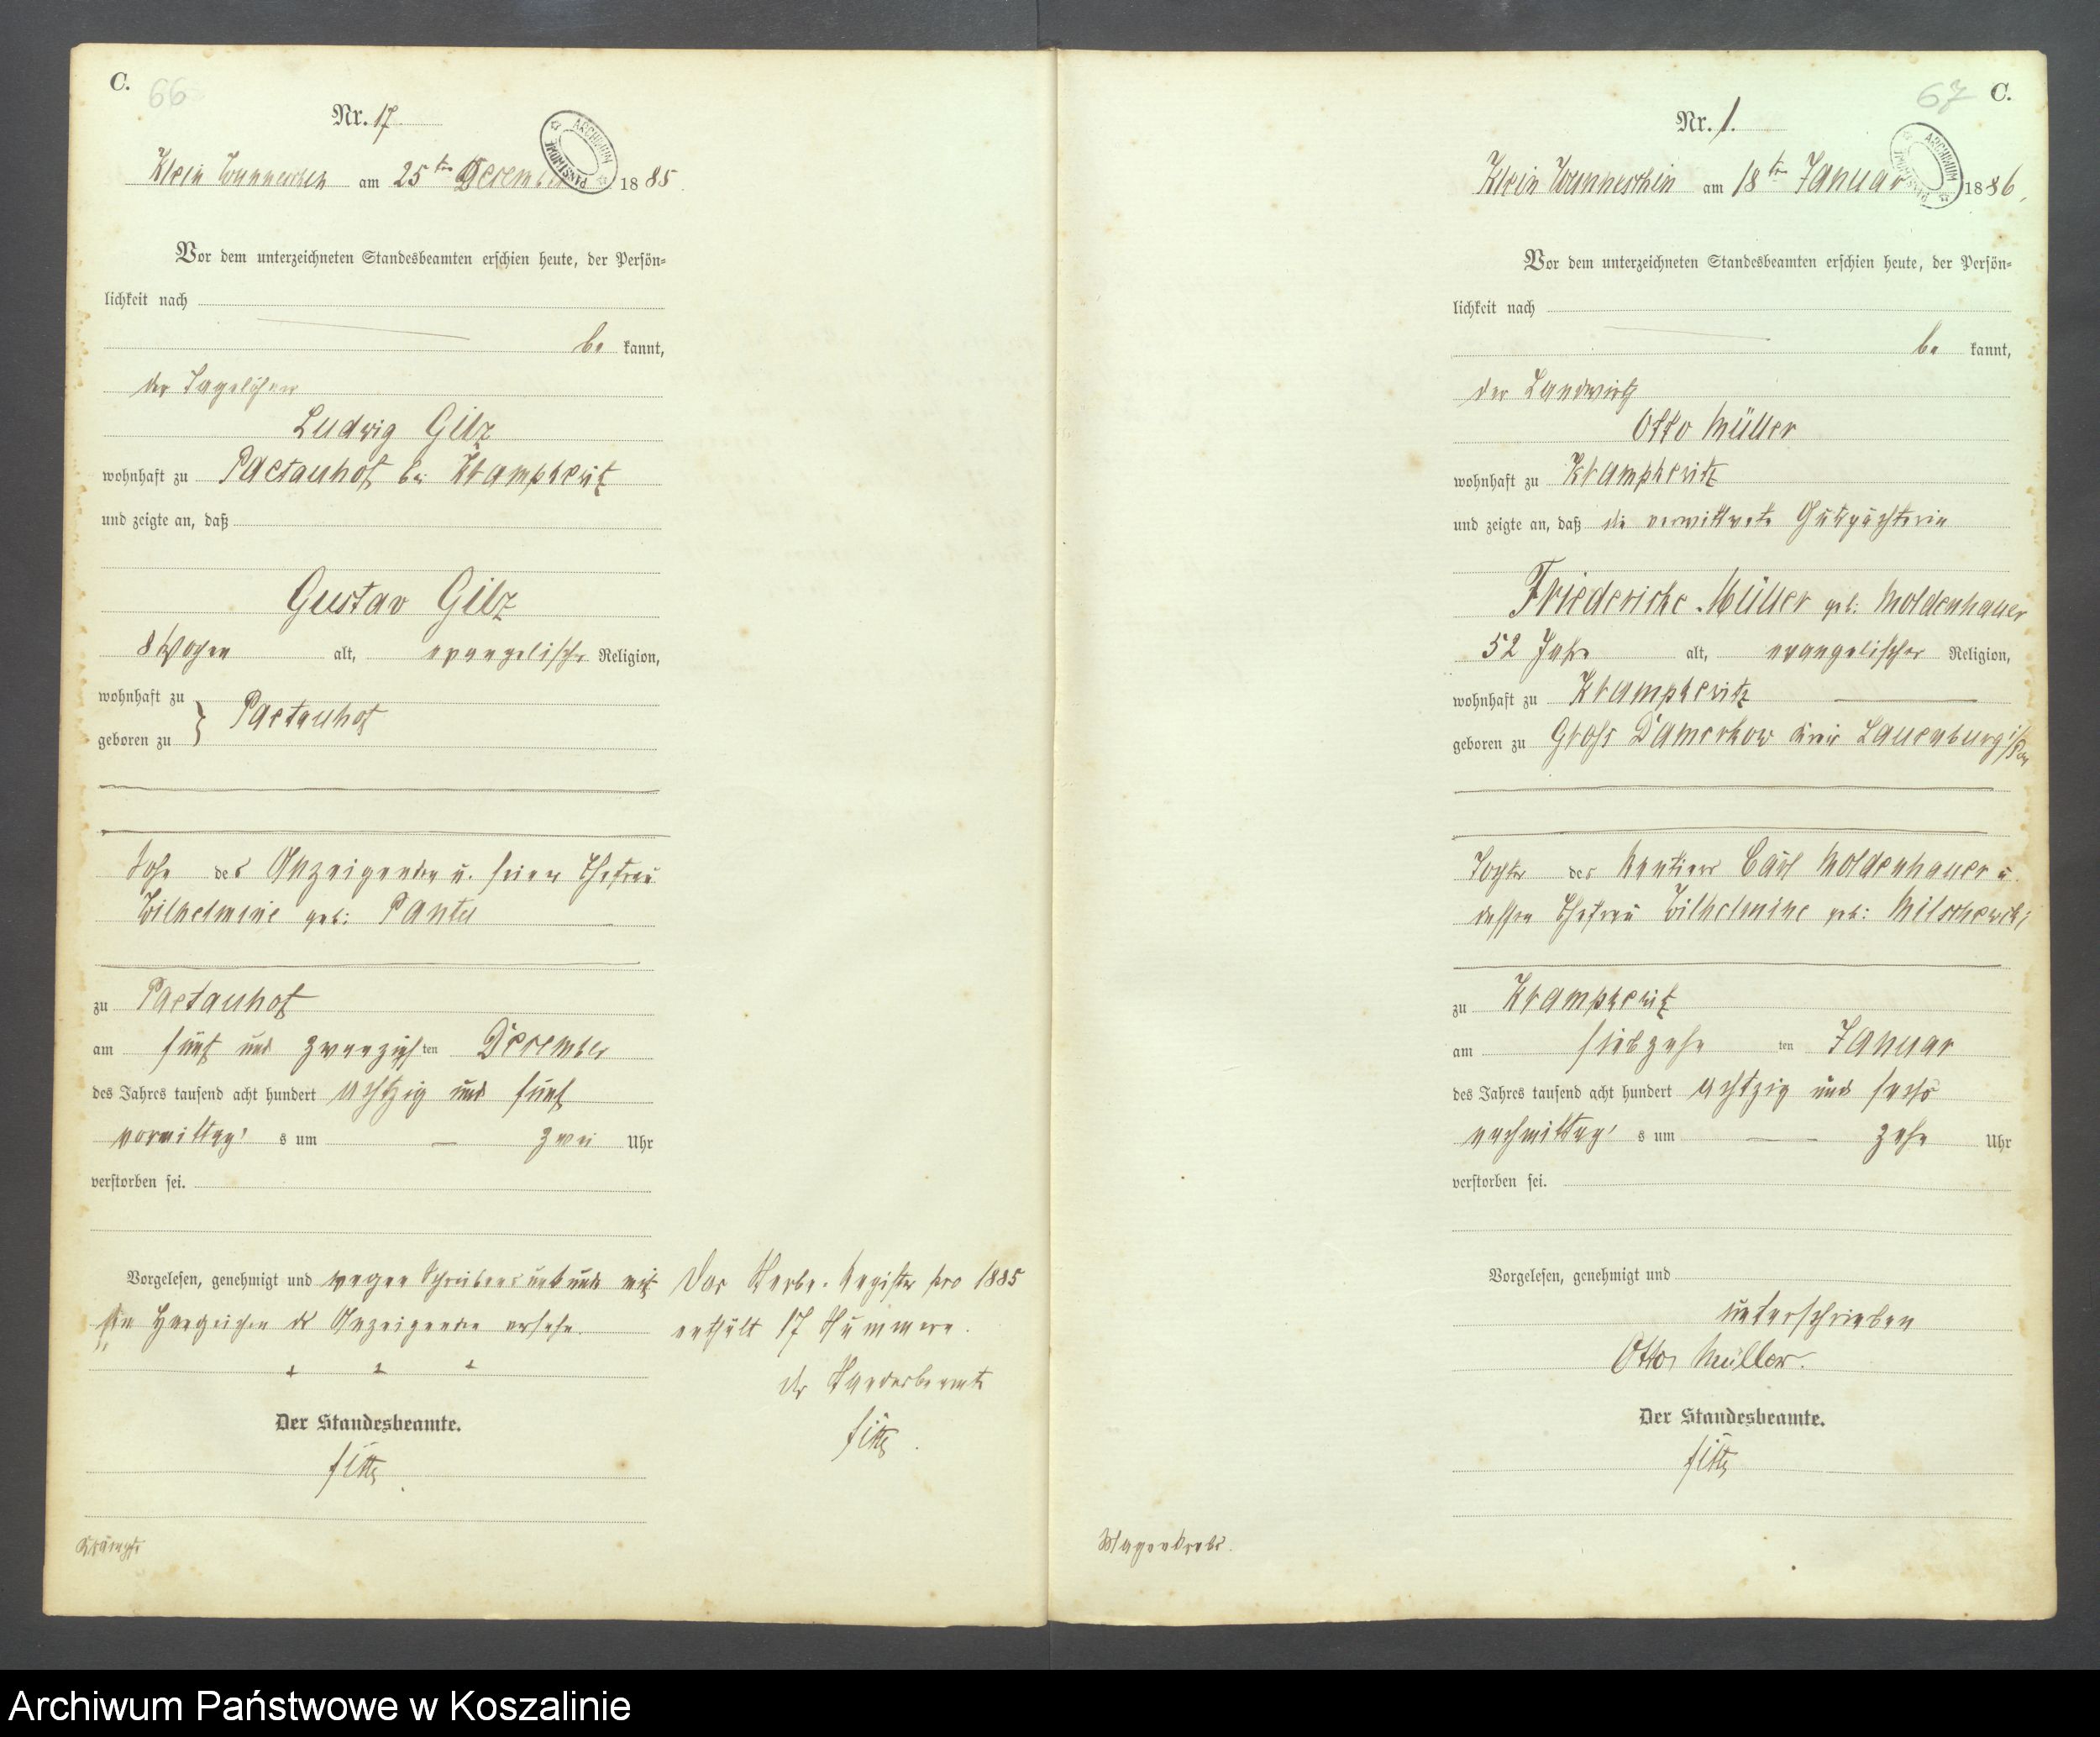 C.
66
Nr. 17.
ARCHIWUM PAŃSTWOWE
Klein Wunneschin am 25ten December 1885.
Vor dem unterzeichneten Standesbeamten erschien heute, der Persön-
lichkeit nach
be kannt,
der Tagelöhner
Ludwig Gilz
wohnhaft zu Paetauhof bei Krampkewitz
und zeigte an, daß
Gustav Gilz
8 Wochen alt, evangelischer Religion,
wohnhaft zu
geboren zu } Paetauhof
Sohn des Anzeigenden u. seiner Ehefrau
Wilhelmine geb:
zu Paetauhof
am fünf und zwanzigsten December
des Jahres tausend acht hundert achtzig und fünf
vormittags um zwei Uhr
verstorben sei.
Vorgelesen, genehmigt und wegen Schreibensunkunde mit
den Handzeichen des Anzeigenden versehn.
+ + +
Der Standesbeamte.
Krämpfe
Das Sterbe-Register pro 1885
enthält 17 Nummern.
der Standesbeamte
67
C.
Nr. 1.
ARCHIWUM PAŃSTWOWE
Klein Wunneschin am 18ten Januar 1886.
Vor dem unterzeichneten Standesbeamten erschien heute, der Persön-
lichkeit nach
be kannt,
der Landwirth
Otto Müller
wohnhaft zu Krampkewitz
und zeigte an, daß die verwittwete Gutspächterin
Friedericke Müller geb: Moldenhauer
52 Jahr alt, evangelischer Religion,
wohnhaft zu Krampkewitz
geboren zu Gross Damerkow Kreis Lauenburg i/Pom
Tochter des Rentiers Carl Moldenhauer u.
dessen Ehefrau Wilhelmine geb:
zu Krampkewitz
am siebzehnten Januar
des Jahres tausend acht hundert achtzig und sechs
nachmittags um zehn Uhr
verstorben sei.
Vorgelesen, genehmigt und
unterschrieben
Otto Müller.
Der Standesbeamte.
Magenkrebs.
Archiwum Państwowe w Koszalinie